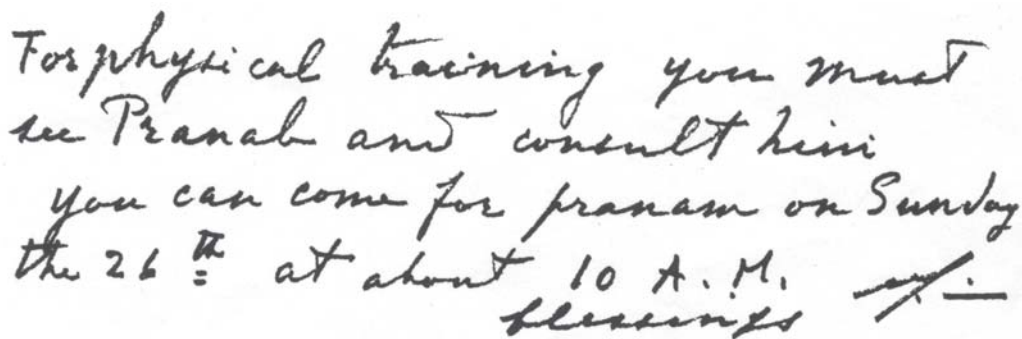 For physical training you must
see Pranab and consult him
you can come for pranam on Sunday
the 26th at about 10 A.M.
blessings